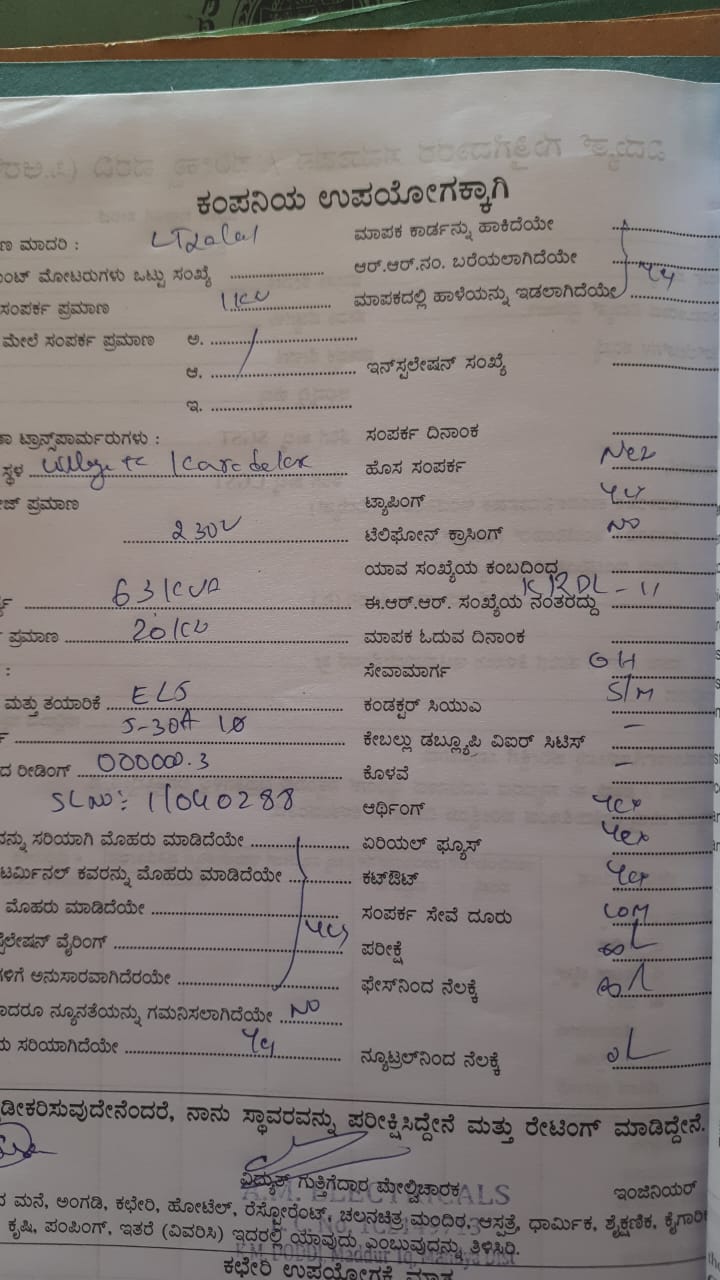 ಕಂಪನಿಯ ಉಪಯೋಗಕ್ಕಾಗಿ
ಣ ಮಾದರಿ : ಮಾಪಕ ಕಾರ್ಡನ್ನು ಹಾಕಿದೆಯೇ
ಂಟ್ ಮೋಟರುಗಳು ಒಟ್ಟು ಸಂಖ್ಯೆ ಆರ್.ಆರ್.ನಂ. ಬರೆಯಲಾಗಿದೆಯೇ
ಸಂಪರ್ಕ ಪ್ರಮಾಣ 1KW ಮಾಪಕದಲ್ಲಿ ಹಾಳೆಯನ್ನು ಇಡಲಾಗಿದೆಯೇ yes
ಮೇಲೆ ಸಂಪರ್ಕ ಪ್ರಮಾಣ ಅ.
ಆ. ಇನ್‌ಸ್ಟಲೇಷನ್ ಸಂಖ್ಯೆ
ಇ.
ಾ ಟ್ರಾನ್ಸ್‌ಪಾರ್ಮರುಗಳು : ಸಂಪರ್ಕ ದಿನಾಂಕ
ಸ್ಥಳ Village tc ಹೊಸ ಸಂಪರ್ಕ New
ೇಜ್ ಪ್ರಮಾಣ ಟ್ಯಾಪಿಂಗ್ yes
230V ಟೆಲಿಫೋನ್ ಕ್ರಾಸಿಂಗ್ NO
ಯಾವ ಸಂಖ್ಯೆಯ ಕಂಬದಿಂದ
63KVA ಈ.ಆರ್.ಆರ್. ಸಂಖ್ಯೆಯ ನಂತರದ್ದು KRDL-11
ಪ್ರಮಾಣ 20KW ಮಾಪಕ ಓದುವ ದಿನಾಂಕ
: ಸೇವಾಮಾರ್ಗ OH
ಮತ್ತು ತಯಾರಿಕೆ ELS ಕಂಡಕ್ಟರ್ ಸಿಯುಎ S/M
5-30A 1Ø ಕೇಬಲ್ಲು ಡಬ್ಲ್ಯೂಪಿ ವಿಐರ್ ಸಿಟಿಸ್ –
ದ ರೀಡಿಂಗ್ 000000.3 ಕೊಳವೆ –
SL NO: 11040288 ಆರ್ಥಿಂಗ್ yes
ನ್ನು ಸರಿಯಾಗಿ ಮೊಹರು ಮಾಡಿದೆಯೇ ಏರಿಯಲ್ ಫ್ಯೂಸ್ yes
ಟರ್ಮಿನಲ್ ಕವರನ್ನು ಮೊಹರು ಮಾಡಿದೆಯೇ ಕಟ್‌ಔಟ್ yes
ಮೊಹರು ಮಾಡಿದೆಯೇ yes ಸಂಪರ್ಕ ಸೇವೆ ದೂರು
ಲೇಷನ್ ವೈರಿಂಗ್ ಪರೀಕ್ಷೆ
ಗಳಿಗೆ ಅನುಸಾರವಾಗಿದೆರಯೇ ಫೇಸ್‌ನಿಂದ ನೆಲಕ್ಕೆ
ಾದರೂ ನ್ಯೂನತೆಯನ್ನು ಗಮನಿಸಲಾಗಿದೆಯೇ NO
ಸರಿಯಾಗಿದೆಯೇ yes ನ್ಯೂಟ್ರಲ್‌ನಿಂದ ನೆಲಕ್ಕೆ
ಢೀಕರಿಸುವುದೇನೆಂದರೆ, ನಾನು ಸ್ಥಾವರವನ್ನು ಪರೀಕ್ಷಿಸಿದ್ದೇನೆ ಮತ್ತು ರೇಟಿಂಗ್ ಮಾಡಿದ್ದೇನೆ.
ವಿದ್ಯುತ್ ಗುತ್ತಿಗೆದಾರ ಮೇಲ್ವಿಚಾರಕ ಇಂಜಿನಿಯರ್
A.M. ELECTRICALS
ದ ಮನೆ, ಅಂಗಡಿ, ಕಛೇರಿ, ಹೋಟೆಲ್, ರೆಸ್ಟೋರೆಂಟ್, ಚಲನಚಿತ್ರ ಮಂದಿರ, ಆಸ್ಪತ್ರೆ, ಧಾರ್ಮಿಕ, ಶೈಕ್ಷಣಿಕ, ಕೈಗಾರಿ
ಕೃಷಿ, ಪಂಪಿಂಗ್, ಇತರೆ (ವಿವರಿಸಿ) ಇದರಲ್ಲಿ ಯಾವುದು ಎಂಬುವುದನ್ನು ತಿಳಿಸಿರಿ.
ಕಛೇರಿ ಉಪಯೋಗಕ್ಕೆ ಮಾತ್ರ